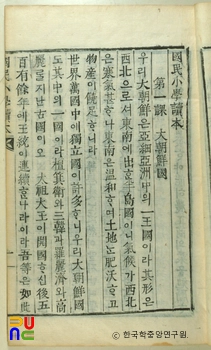 國民小學讀本
第一課 大朝鮮國
우리大朝鮮은亞細亞洲中의一王國이라其形은
西北으로셔東南에出ᄒᆞᆫ半島國이니氣候가西北
은寒氣甚ᄒᆞ나東南은溫和ᄒᆞ며土地ᄂᆞᆫ肥沃ᄒᆞ고
物産이饒足ᄒᆞ니라
世界萬國中에獨立國이許多ᄒᆞ니우리大朝鮮國
도其中의一國이라檀箕衛와三韓과羅麗濟와高
麗를지난古國이오太祖大王이開國ᄒᆞ신後五
百有餘年에王統이連續ᄒᆞᆫ나라이라吾等은如此
國民小學讀本
한국학중앙연구원